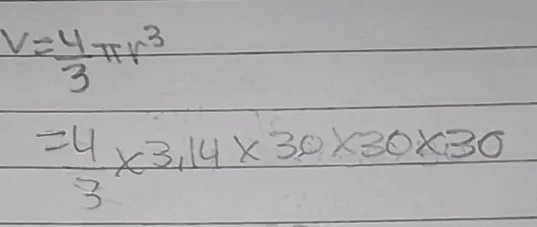 V=4/3 πr³
=4/3 ×3,14×30×30×30